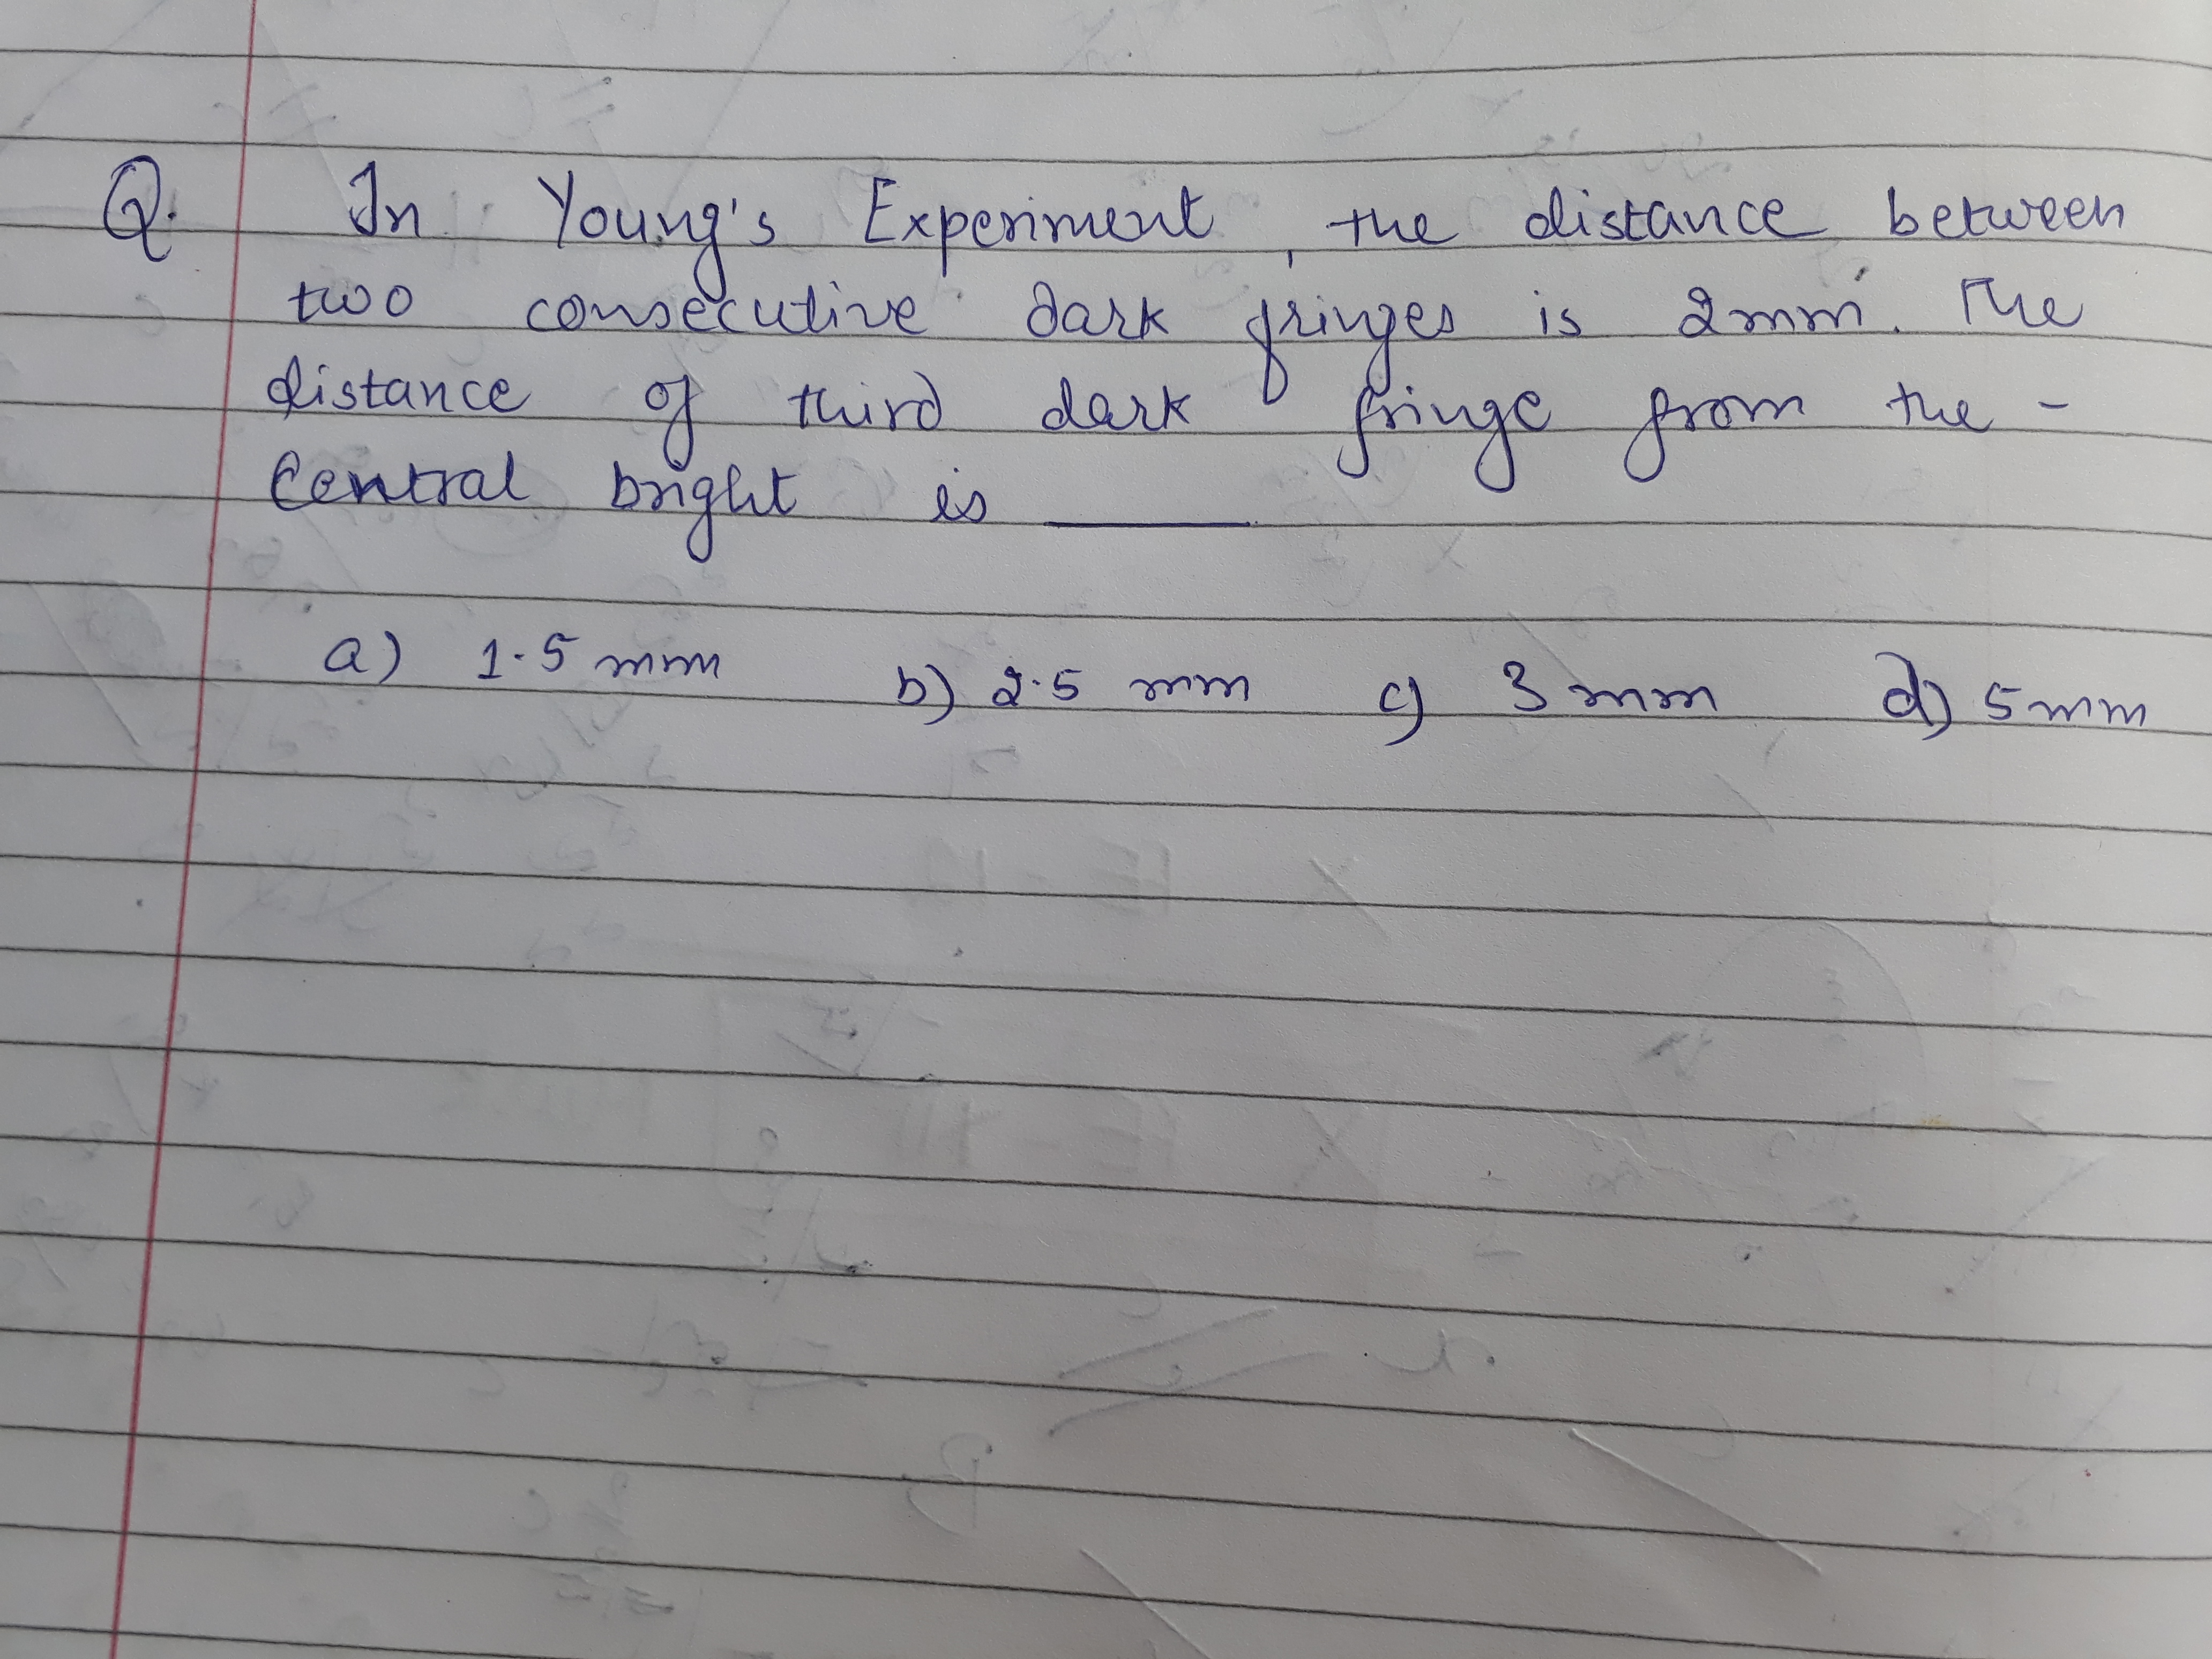 Q. In Young's Experiment, the distance between
two consecutive dark fringes is 2mm. The
distance of third dark fringe from the -
Central bright is ______
a) 1.5 mm b) 2.5 mm c) 3 mm d) 5 mm